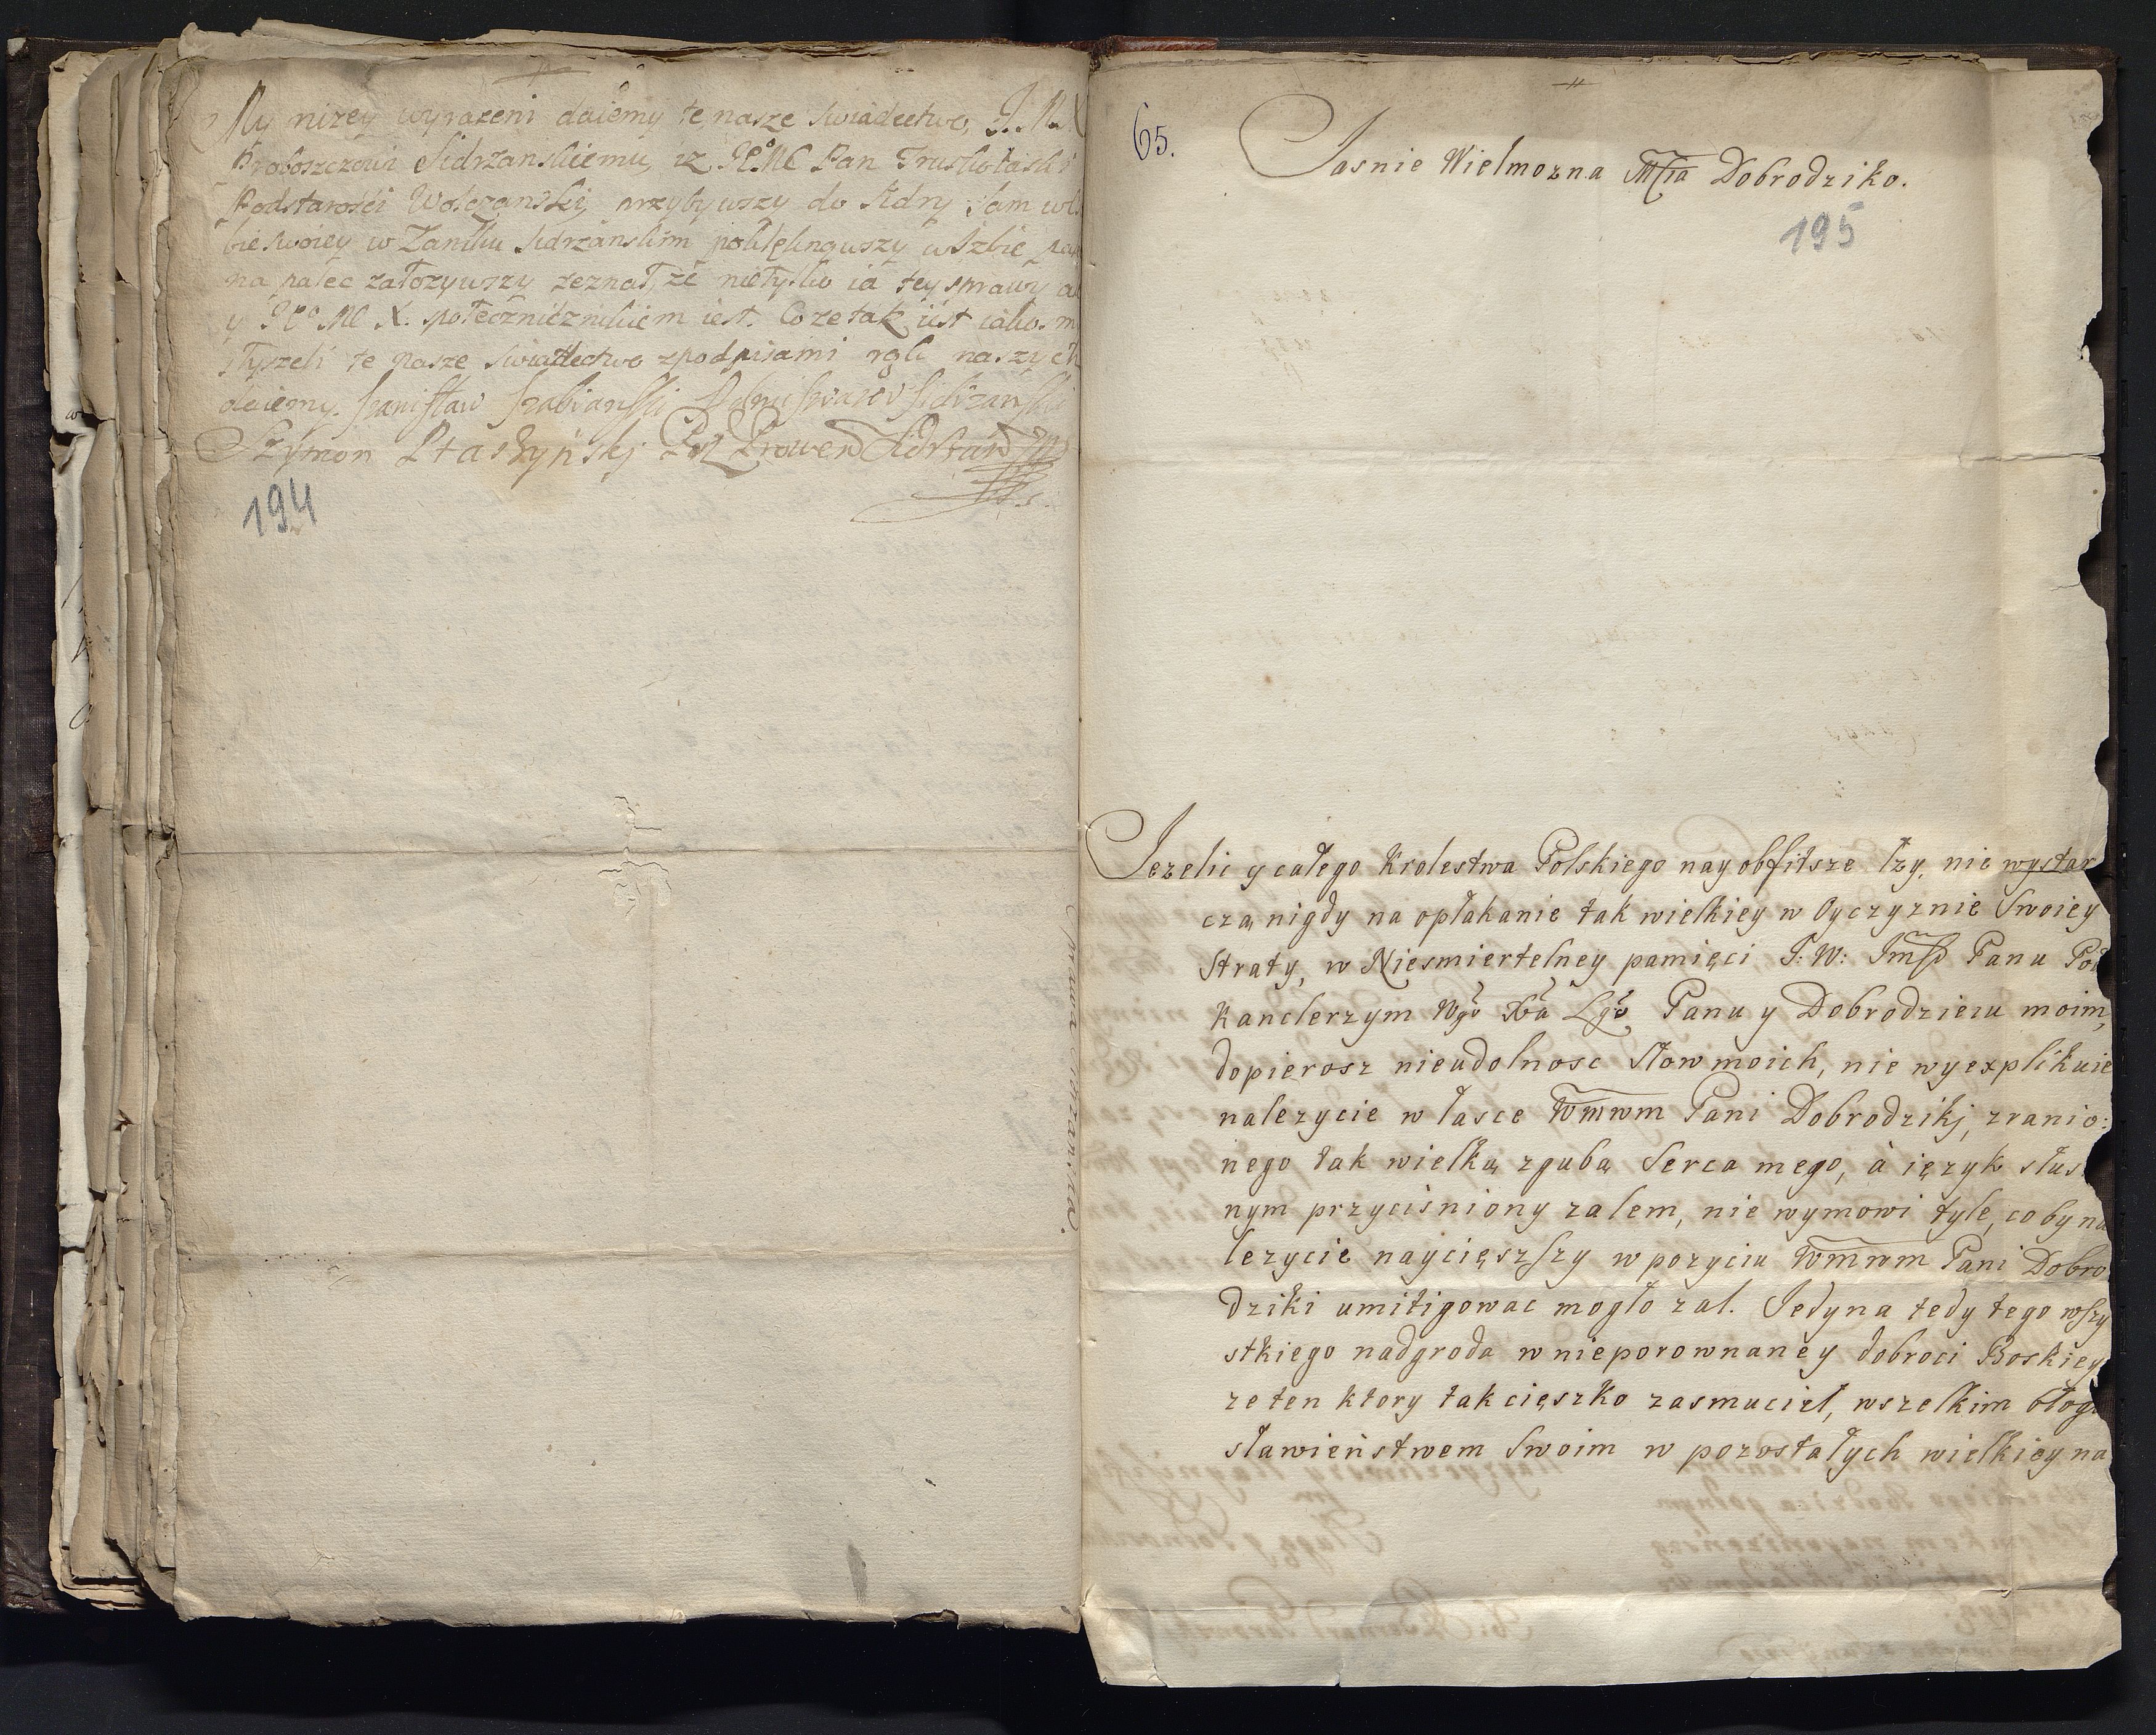 My nizey wyrazeni daiemy te nasze swiadectwo, J. M. X
Proboszczowi Sidrzanskiemu, iz JE.MC Pan Truskolaski
Podstarości Wołczanski, przybywszy do Sidry, sam w
bie swoiey w Zamku Sidrzanskim poklęknąwszy w Izbie,
na palec załozywszy zeznał, że nietylko ia tey sprawy a
y JEo MC X. społecznicznikiem iest. Co ze tak iest iako m
słyszeli te nasze swiadectwo z podpisami rąk naszych
daiemy. Stanisław Sidrzanski
Szymon Ptaszyński Prowen
194
65.
Jasnie Wielmozna Mscia Dobrodziko.
195
Jezelic y całego Krolestwa Polskiego nay obfitsze łzy, nie wystar
czą nigdy na opłakanie tak wielkiey w Oyczyznie Swoiey
Straty, w Niesmiertelney pamięci J: W: Jmsp Panu Pod
Kanclerzym Wgo Xa Lgo Panu y Dobrodzieiu moim,
dopierosz nieudolnosc Słow moich, nie wyexplikuie
nalezycie w łasce Wmwm Pani Dobrodzikj, zranio:
nego tak wielką zgubą Serca mego, à ięzyk słus
nym przyciśniony zalem, nie wymowi tyle, co by na
lezycie naycięszszy w pozyciu Wmwm Pani Dobro
dziki umitigowac mogło zal. Jedyna tedy tego wszy
stkiego nadgroda w nieporownaney dobroci Boskiey
ze ten ktory tak cięszko zasmucieł, wszelkim błogo
sławieństwem Swoim w pozostałych wielkiey na